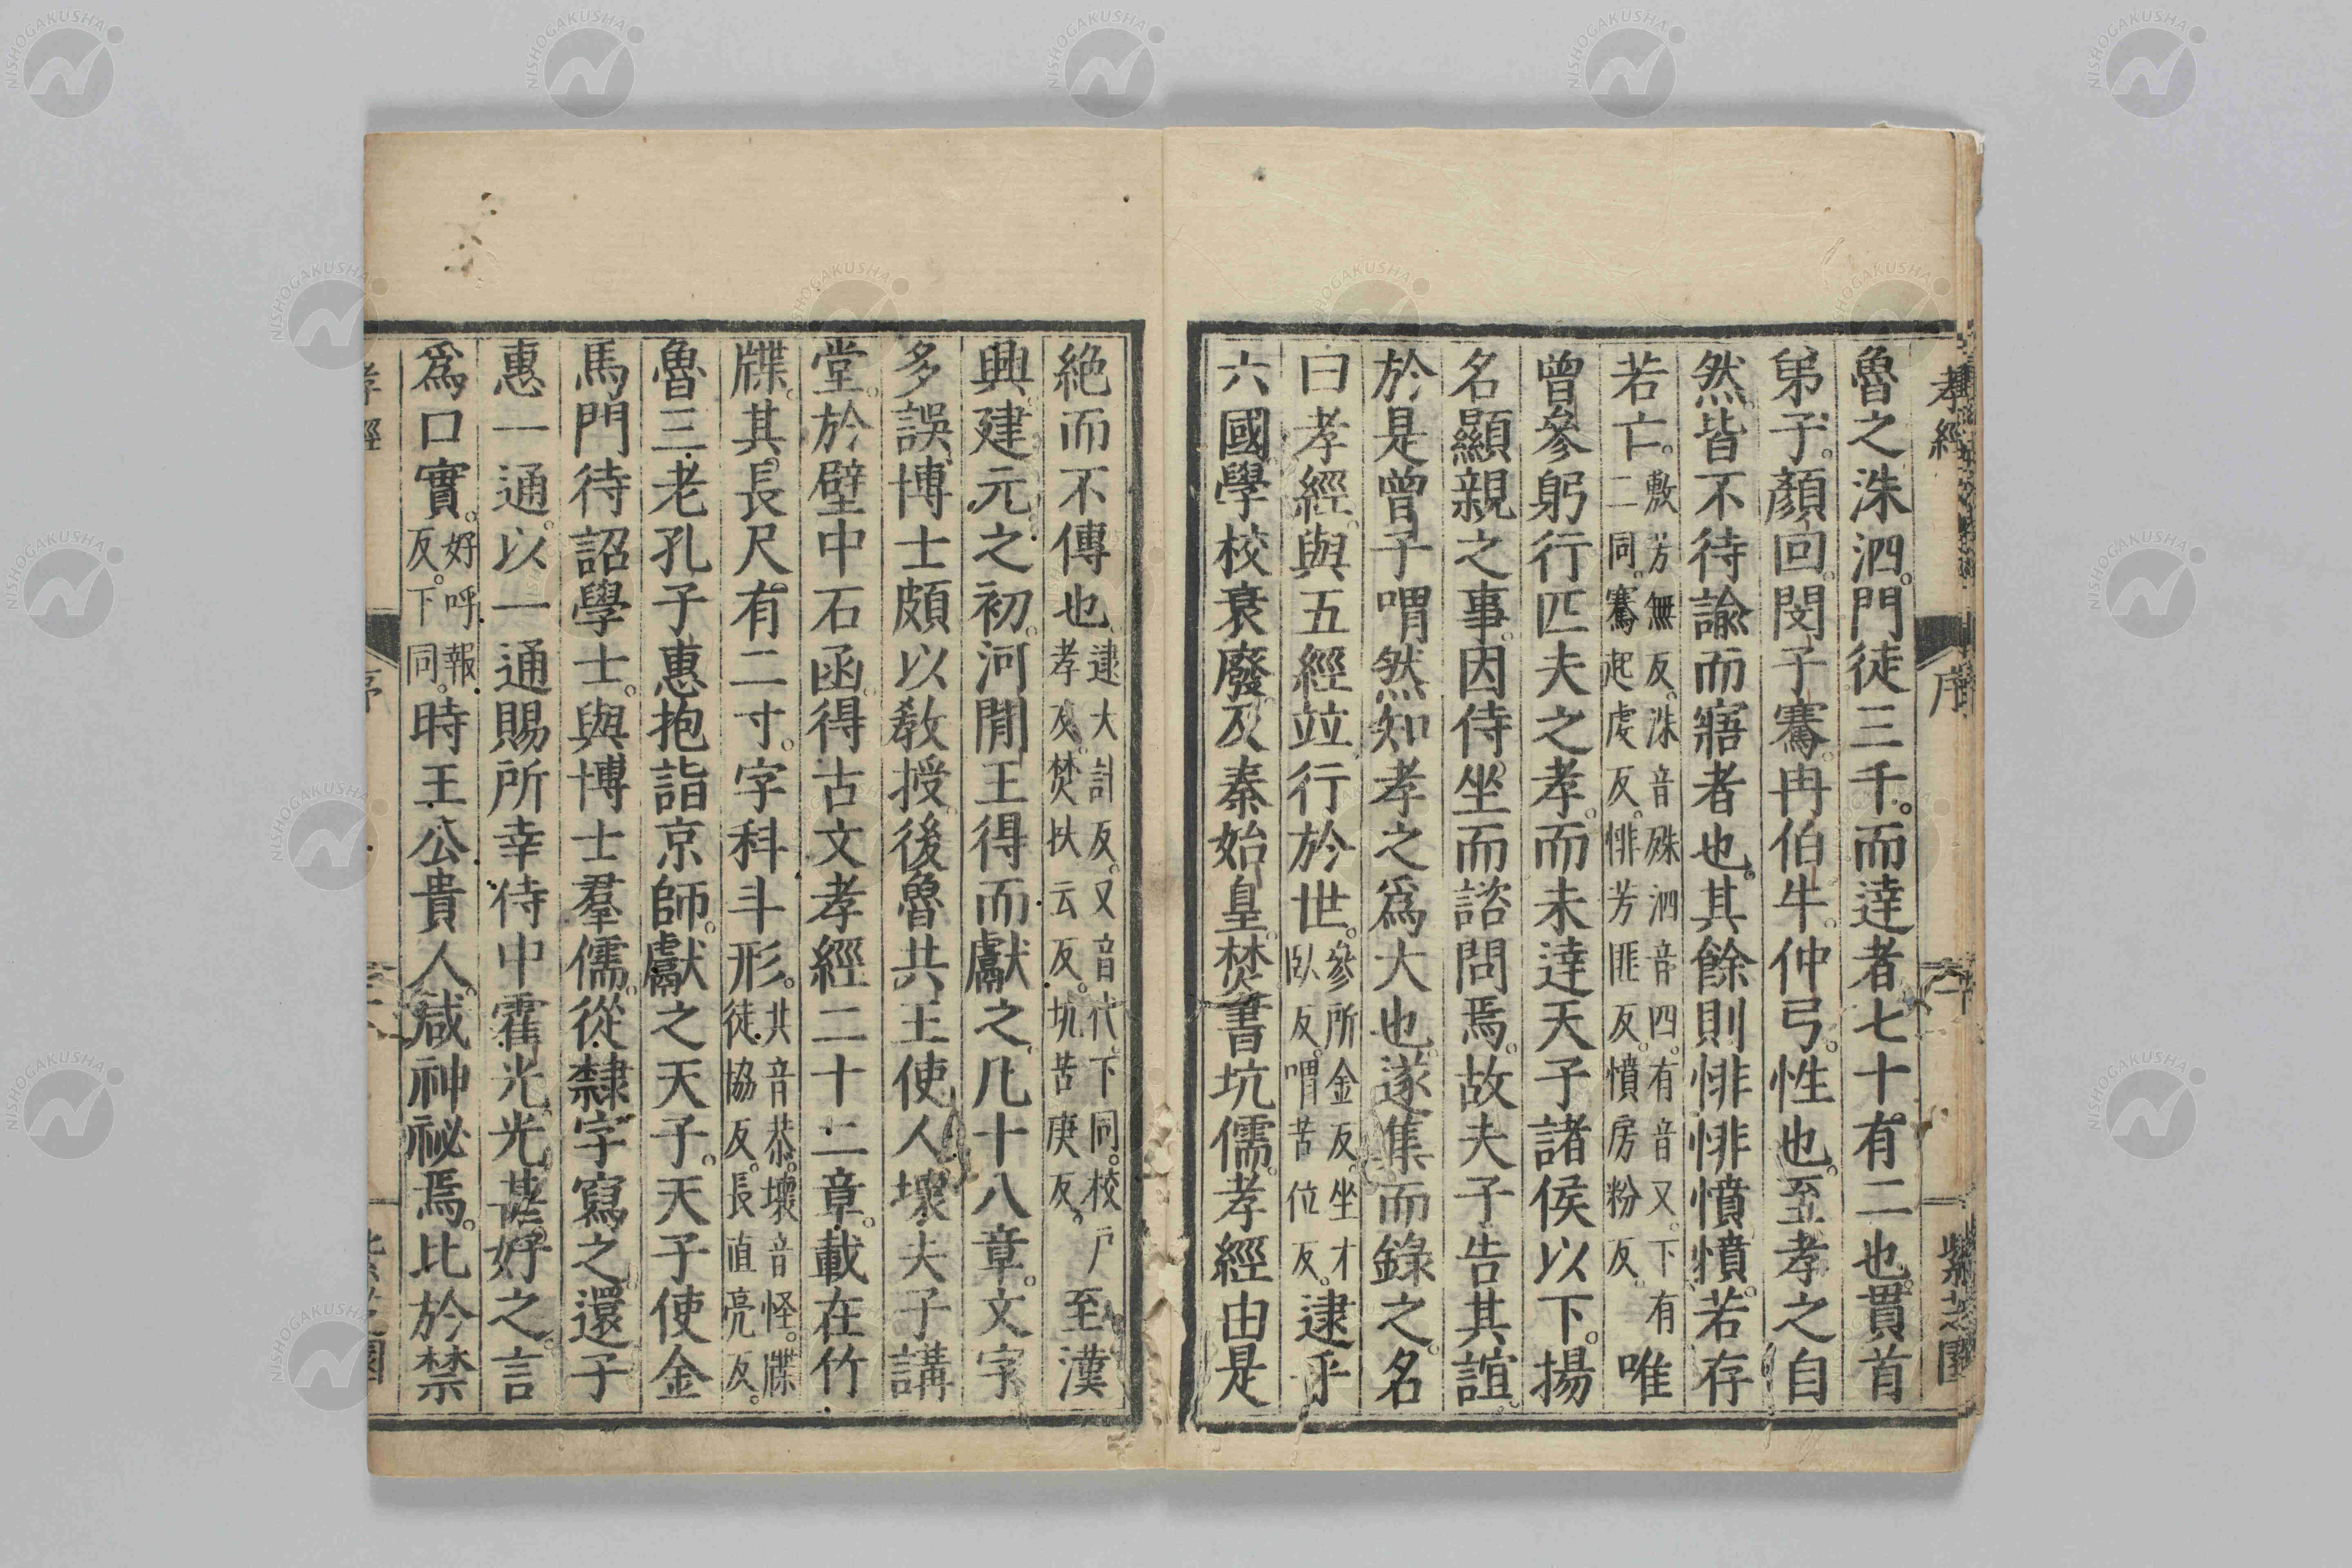 孝經
序
紫芝園
魯之洙泗。門徒三千。而達者七十有二也。貫首
弟子。顏回。閔子騫。冉伯牛。仲弓。性也。至孝之自
然。皆不待諭而寤者也。其餘則悱悱憤憤。若存
若亡。敷芳無反。洙音殊泗音四。有音又。下有二同。騫起虔反。悱芳匪反。憤房粉反。唯
曾參躬行匹夫之孝。而未達天子諸侯以下。揚
名顯親之事。因侍坐而諮問焉。故夫子告其誼。
於是曾子喟然知孝之爲大也。遂集而錄之。名
曰孝經。與五經竝行於世。參所金反。坐才臥反。喟苦位反。逮乎
六國學校衰廢。及秦始皇焚書坑儒。孝經由是
絕而不傳也。逮大計反。又音代下同。校戶孝反。焚扶云反。坑苦庚反。至漢
興建元之初。河閒王得而獻之。凡十八章。文字
多誤。博士頗以敎授。後魯共王使人壞夫子講
堂。於壁中石函。得古文孝經二十二章。載在竹
牒。其長尺有二寸。字科斗形。共音恭。壞音怪。牒徒協反。長直亮反。
魯三老孔子惠抱詣京師。獻之天子。天子使金
馬門待詔學士。與博士羣儒。從隸字寫之。還子
惠一通。以一通賜所幸侍中霍光。光甚好之。言
爲口實。好呼報反。下同。時王公貴人。咸神祕焉。比於禁